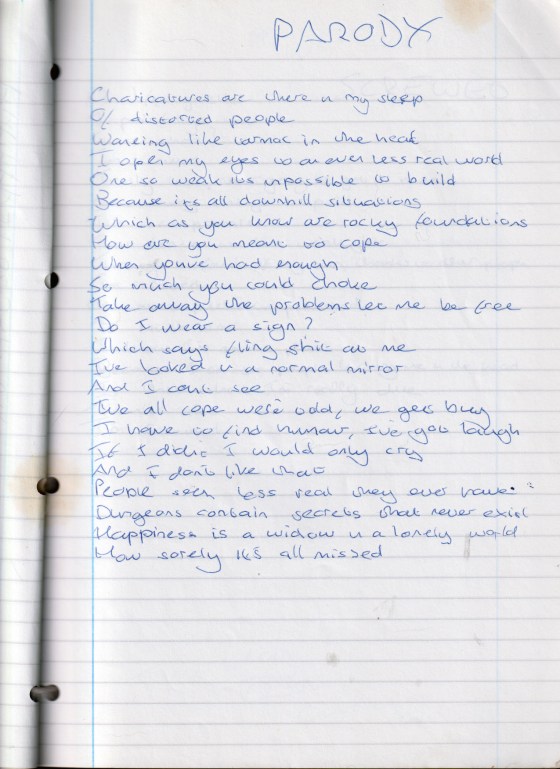 PARODY
Charicatures are there in my sleep
Of distorted people
Wavering like tarmac in the heat
I open my eyes to an ever less real world
One so weak its impossible to build
Because its all downhill situations
Which as you know are rocky foundations
How are you meant to cope
When you've had enough
So much you could choke
Take away the problems let me be free
Do I wear a sign?
Which says fling shit at me
I've looked in a normal mirror
And I cant see
I've all cope were odd, we get busy
I have to find humour, I've got laugh
If I didnt I would only cry
And I don't like that
People seem less real they ever have
Dungeons contain secrets that never exist
Happiness is a widow in a lonely world
How sorely its all missed